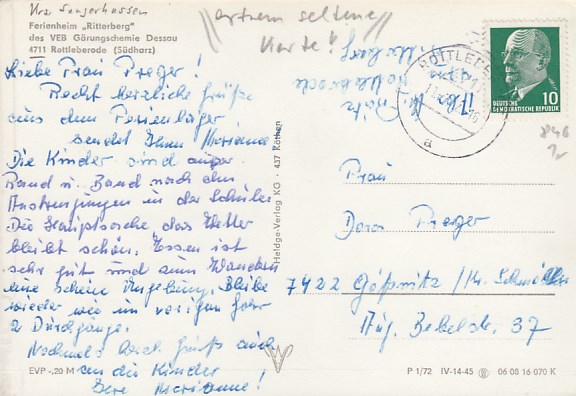 Krs Sangerhausen
"extrem seltene
Karte"!
Ferienheim „Ritterberg"
des VEB Gärungschemie Dessau
4711 Rottleberode (Südharz)
Liebe Frau Preger!
Recht herzliche Grüße
aus dem Ferienlager
sendet Ihnen Marianne
Die Kinder sind außer
Rand u. Band nach den
Anstrengungen in der Schule.
Die Hauptsache, das Wetter
bleibt schön. Essen ist
sehr gut und zum Wandern
eine schöne Umgebung. Bleibe
wieder wie im vorigen Jahr
2 Durchgänge.
Nochmals herzl. Grüße auch
an die Kinder
Ihre Marianne!
EVP -,20 M
Heldge-Verlag KG · 437 Köthen
Rottleberode
DEUTSCHE
DEMOKRATISCHE REPUBLIK
10
a
Frau
Dora Preger
7422 Gößnitz / Kr. Schmölln
Aug. Bebelstr. 37
P 1/72 IV-14-45 06 08 16 070 K